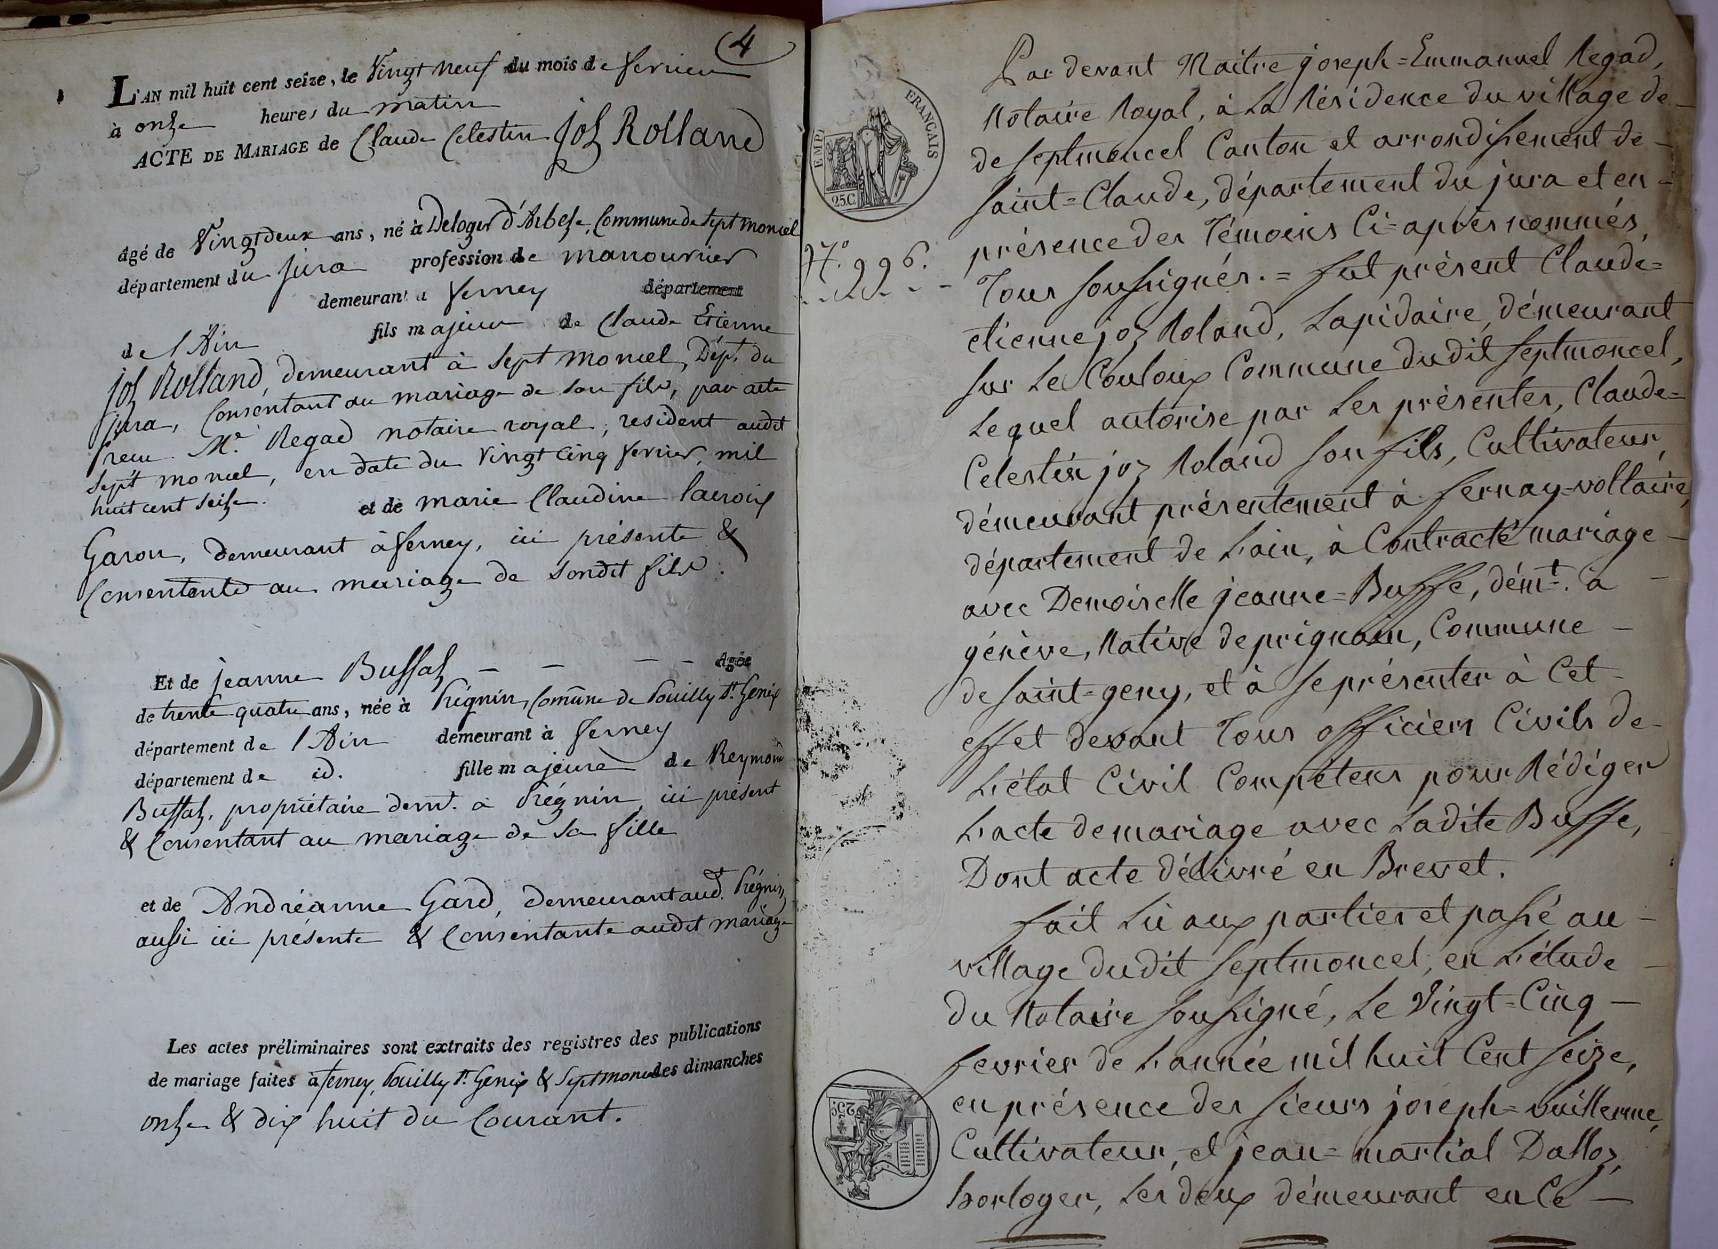 4
L'AN mil huit cent seize, le Vingt neuf du mois de fevrier
à onze heures du matin
ACTE DE MARIAGE de Claude Celestin Joz Rolland
âgé de Vingt deux ans, né à Deloger d'Arbese, Commune de Sept moncel
département du Jura profession de manouvrier
demeurant à ferney département
de l'Ain fils majeur de Claude Etienne
Joz Rolland, demeurant à Sept moncel, Dépt. du
jura, Consentant au mariage de son fils, par acte
recu Me. Regad notaire royal, resident audit
Sept moncel, en date du vingt Cinq fevrier, mil
huit cent Seize. et de marie Claudine lacroix
Garon, demeurant à ferney, ici présente &
Consentente au mariage de sondit fils.
Et de jeanne Buffaz âgée
de trente quatre ans, née à Prégnin, Comune de Pouilly St. Genix
département de l'Ain demeurant à ferney
département de id. fille majeure de Reymond
Buffaz, propriétaire demt. à Prégnin ici présent
& Consentant au mariage de sa fille
et de Andréanne Gard, demeurant audt. Prégnin
aussi ici présente & Consentante audit mariage
Les actes préliminaires sont extraits des registres des publications
de mariage faites à ferney, Pouilly St. Genix & Septmoncel les dimanches
onze & dix huit du Courant.
EMPI FRANÇAIS
25.C.
N.o 226.
Par devant Maitre joseph=Emmanuel Regad,
Notaire Royal, à La Résidence du village de
de Septmoncel Canton et arrondissement de
Saint=Claude, département du jura et en
présence des Témoins Ci=après nommés,
Tous Soussignés. = fut présent Claude=
etienne joz Roland, Lapidaire, démeurant
Sur Le Couloux Commune dudit Septmoncel,
Lequel autorise par Les présentes, Claude=
Celestin joz Roland Son fils, Cultivateur,
démeurant présentement à fernay=voltaire,
département de L'ain, à Contracté mariage
avec Demoiselle jeanne=Buffe, démt. à
génève, Native de prignain, Commune
de Saint=geny, et à Se présenter à Cet
effet devant Tous officiers Civils de
L'état Civil Compétens pour Rédiger
L'acte de mariage avec Ladite Buffe,
Dont acte délivré en Brevet.
fait Lu aux parties et passé au
village dudit Septmoncel, en L'étude
du Notaire Soussigné, Le Vingt=Cinq
fevrier de L'année mil huit Cent Seize,
en présence des Sieurs joseph=vuillerme,
Cultivateur, et jean=martial Dalloz,
horloger, Les deux démeurant en Ce
25.C.